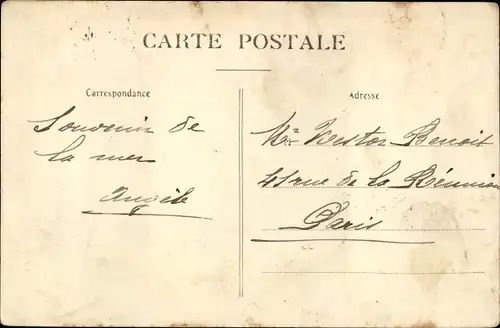 CARTE POSTALE
Correspondance
Adresse
Souvenir de
la mer
Angèle
Mr Nestor Benoit
41 rue de la Réunion
Paris